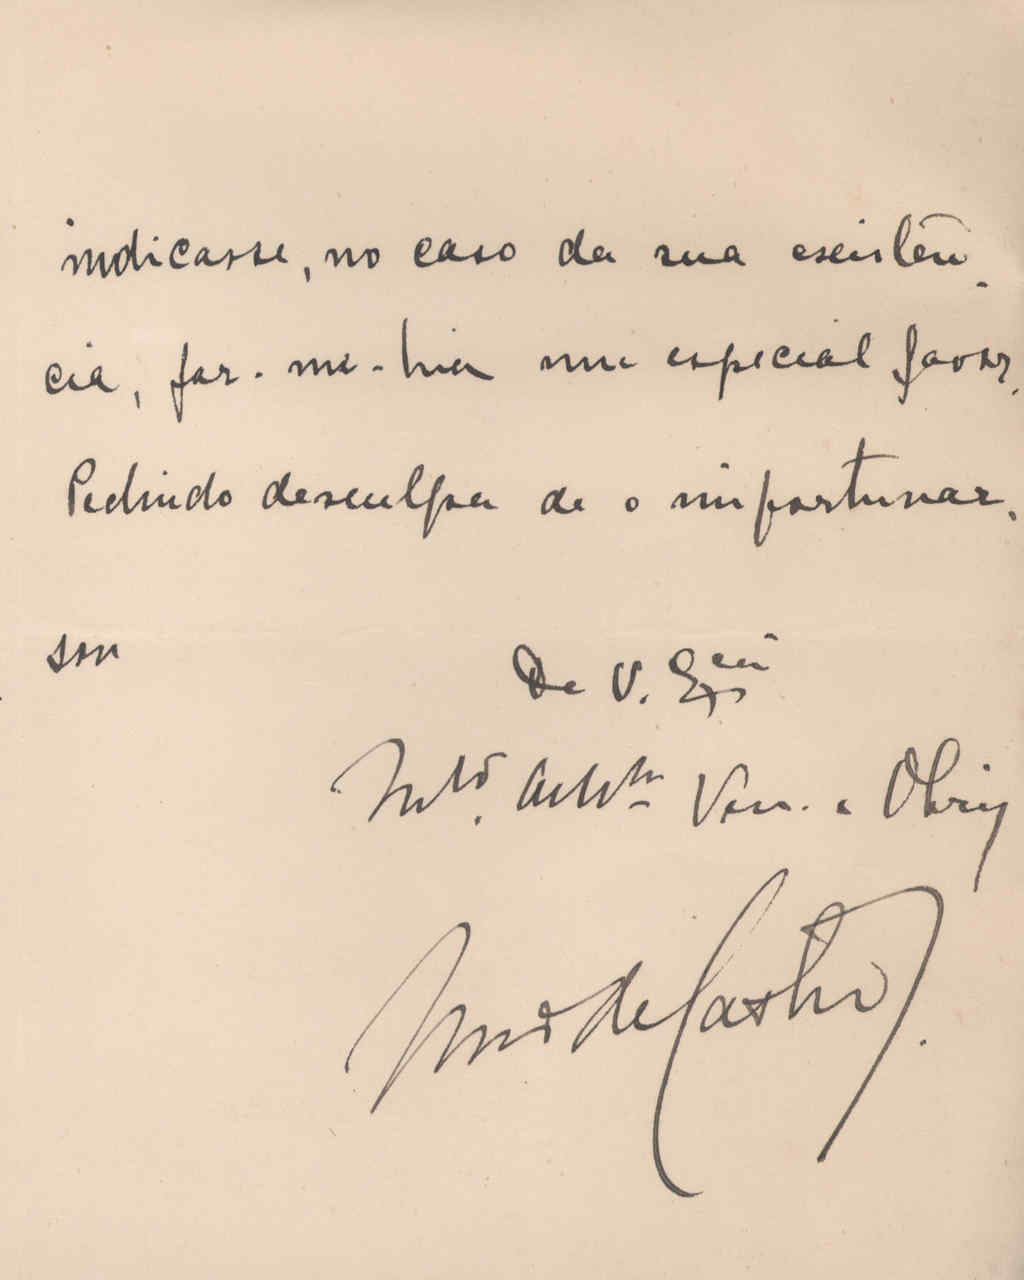 indicasse, no caso da sua existên-
cia, far-me-hia um especial favor.
Pedindo desculpa de o importunar,
sou
De V. Excia
Mto. Attº Ven. e Obrig
de Castro